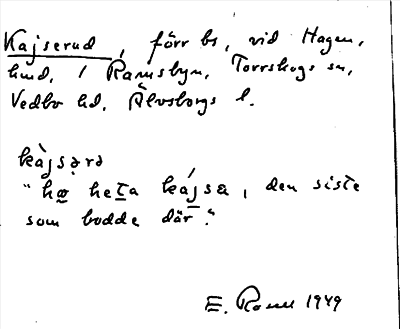 Kajserud, förr bs, vid Hagen,
hmd. i Ramsbyn, Torrskogs sn,
Vedbo hd. Älvsborgs l.
kàjsərə
"hω heta kájsa, den siste
som bodde där."
E. 1949